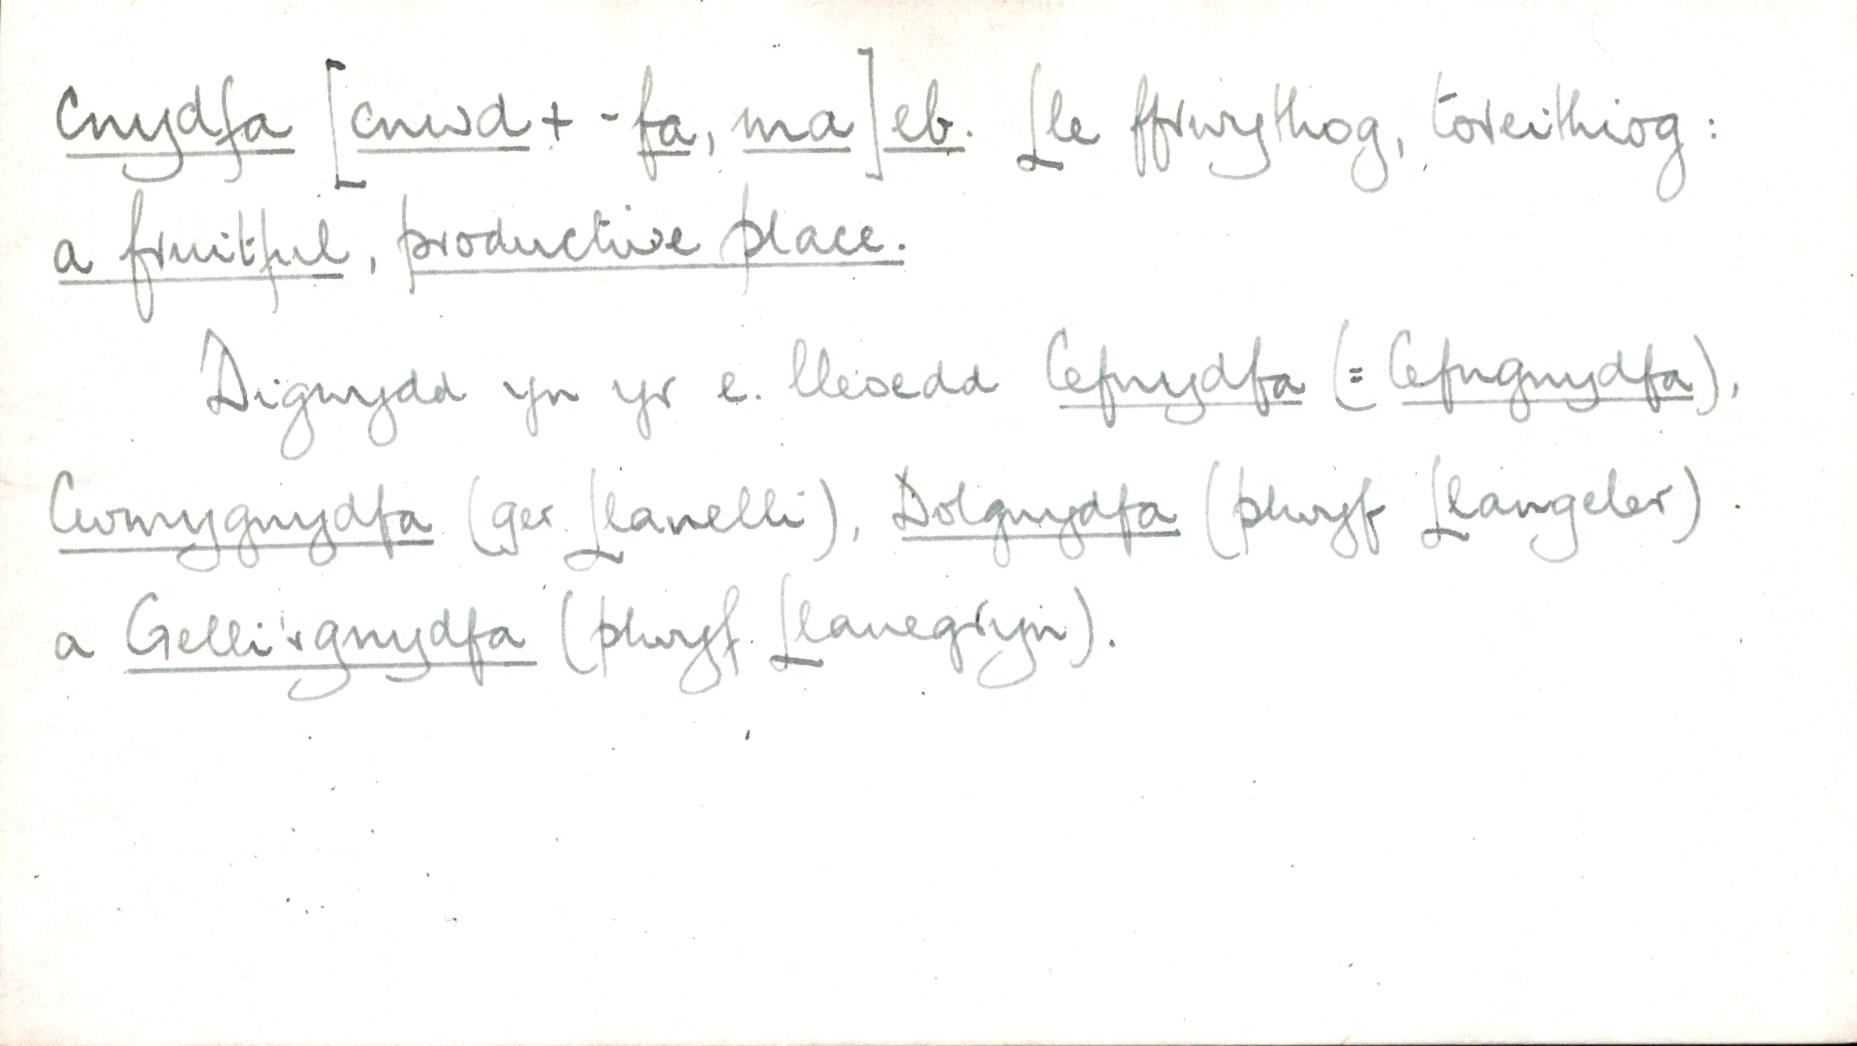 Cnydfa [cnwd + -fa, ma] eb. Lle ffrwythog, toreithiog:
a fruitful, productive place.
Digwydd yn yr e. lleoedd Cefnydfa (= Cefngnydfa),
Cwmygnydfa (ger Llanelli), Dolgnydfa (plwyf Llangeler)
a Gelli'rgnydfa (plwyf Llanegryn).